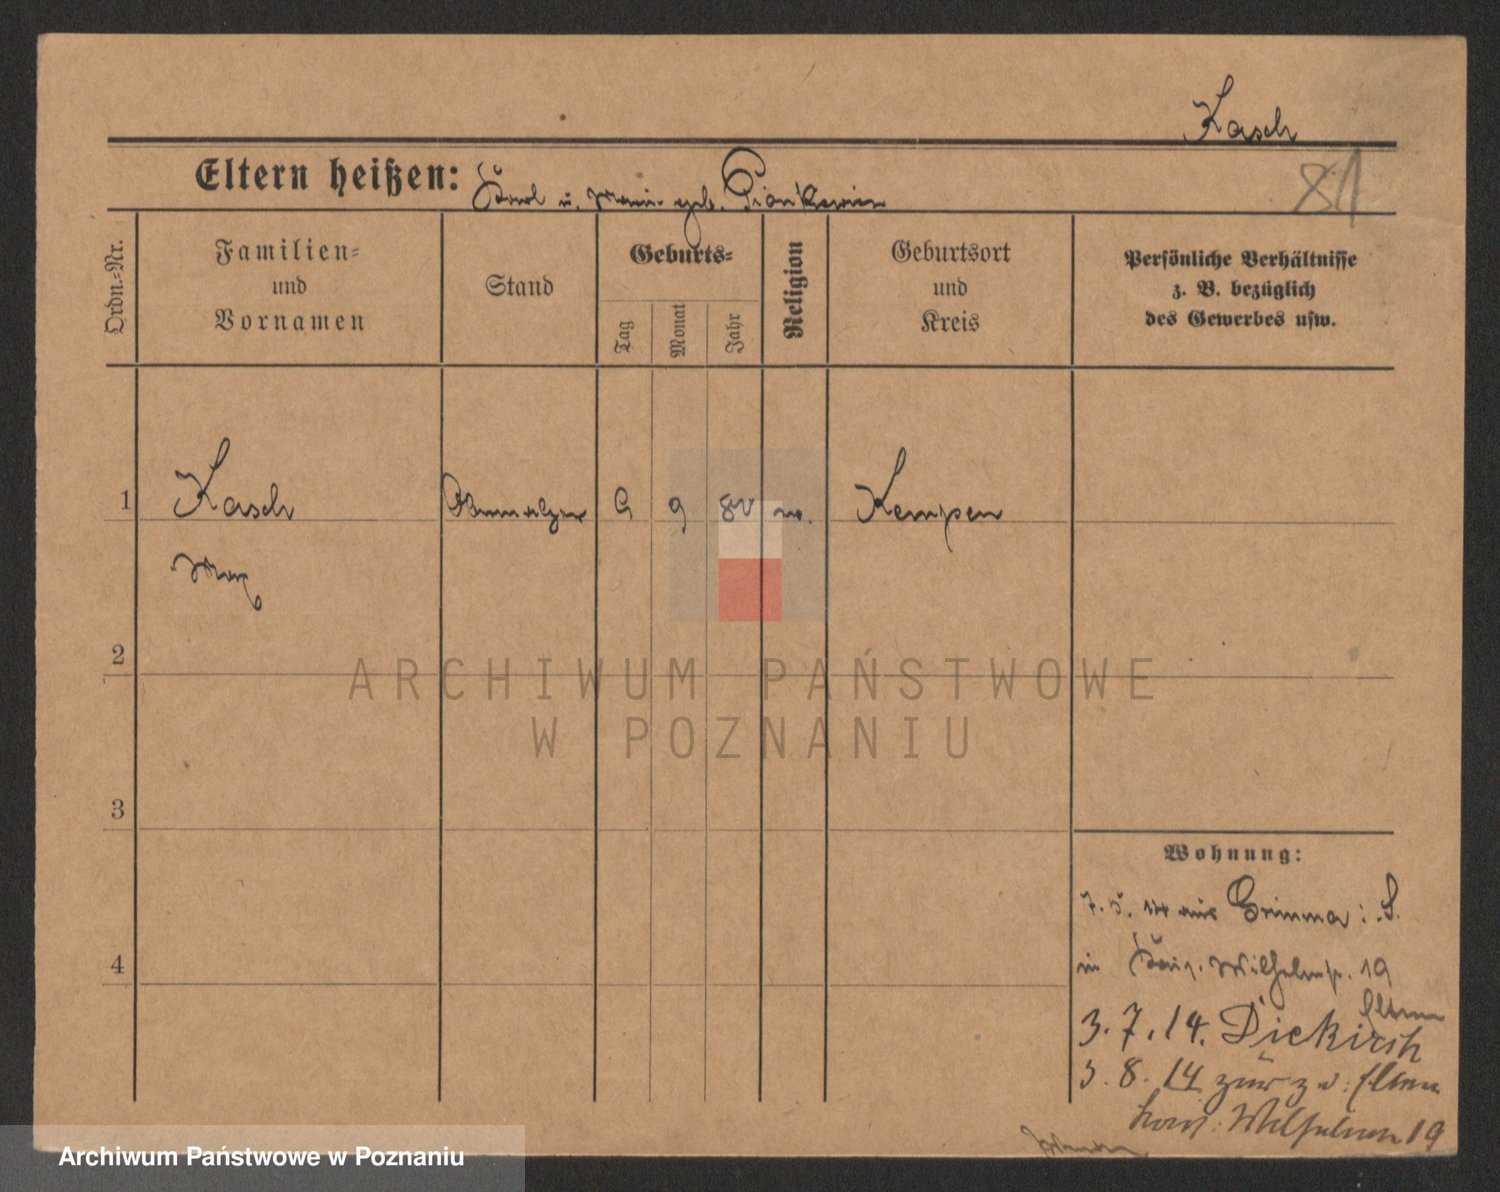 Kasch
81
Eltern heißen: Karl u. Marie geb.
Ordn.=Nr.
Familien=
und
Vornamen
Stand
Geburts=
Tag
Monat
Jahr
Religion
Geburtsort
und
Kreis
Persönliche Verhältnisse
z. B. bezüglich
des Gewerbes usw.
1 Kasch 9 Kempen
Max
2
3
4
Wohnung:
7. 5. 14 aus Grimma i. S.
in Wilhelmstr. 19
Eltern
3. 7. 14. Diekirch
3. 8. 14 zur z. d. Eltern
19
ARCHIWUM PAŃSTWOWE
W POZNANIU
Archiwum Państwowe w Poznaniu